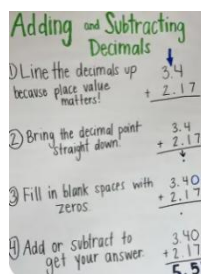 Adding and Subtracting
Decimals
1) Line the decimals up
because place value
matters!
3.4
+ 2.17
2) Bring the decimal point
straight down.
3.4
+ 2.17
.
3) Fill in blank spaces with
zeros.
3.40
+ 2.17
.
4) Add or subtract to
get your answer.
3.40
+ 2.17
5.5